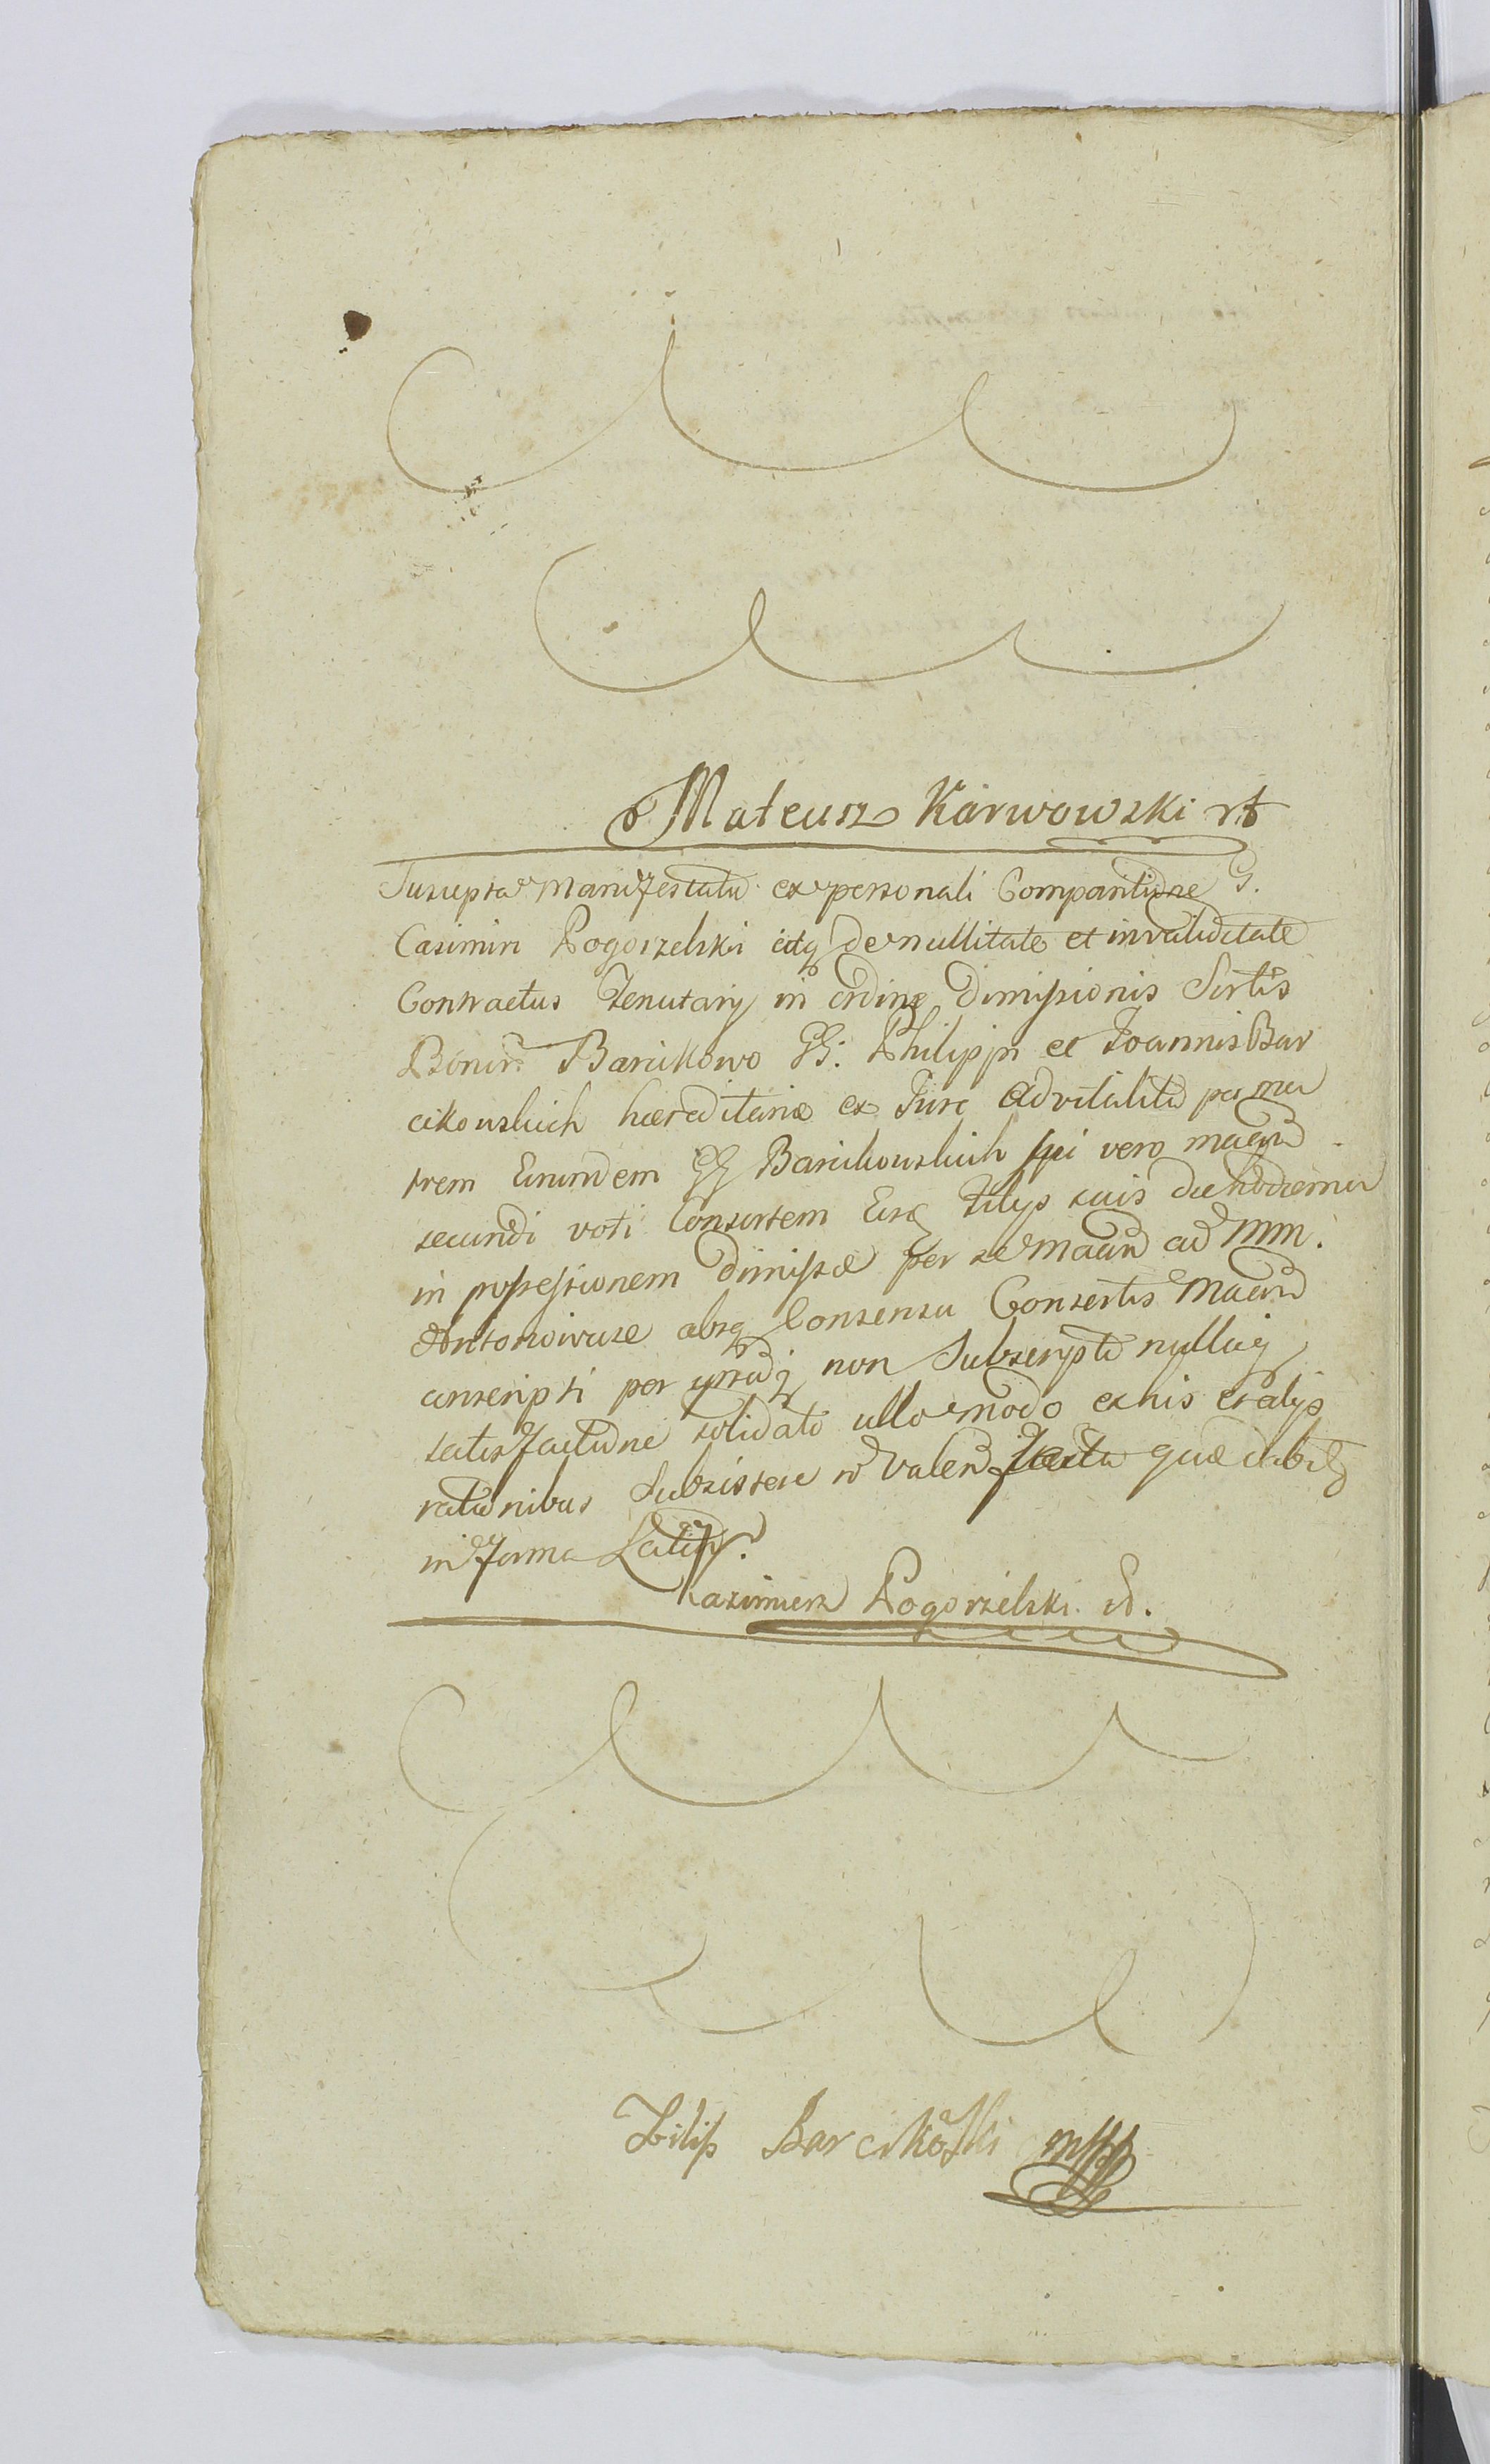 Mateusz Karwowski rt
Suscepta Manifestatio ex personali Comparitione G.
Casimiri Pogorzelski idq de nullitate et invaliditate
Contractus Tenutarij in ordine dimissionis Sortis
Bonor. Barcikowo GG. Philippi et Joannis Bar
cikowskich haereditariae ex Jure advitalita per ma
trem Eorundem GG Barcikowskich sui vero
secundi voti Consortem Eisq filijs suis die hodierna
in possessionem dimissae per se ad MM.
absq Consensu Consortis
per non Subscripto nullaq
satisfactione solidato ullo modo ex his et alijs
rationibus Subsistere valen facta quae
in forma
Kazimierz Pogorzelski
Filip Barcikoski mpp